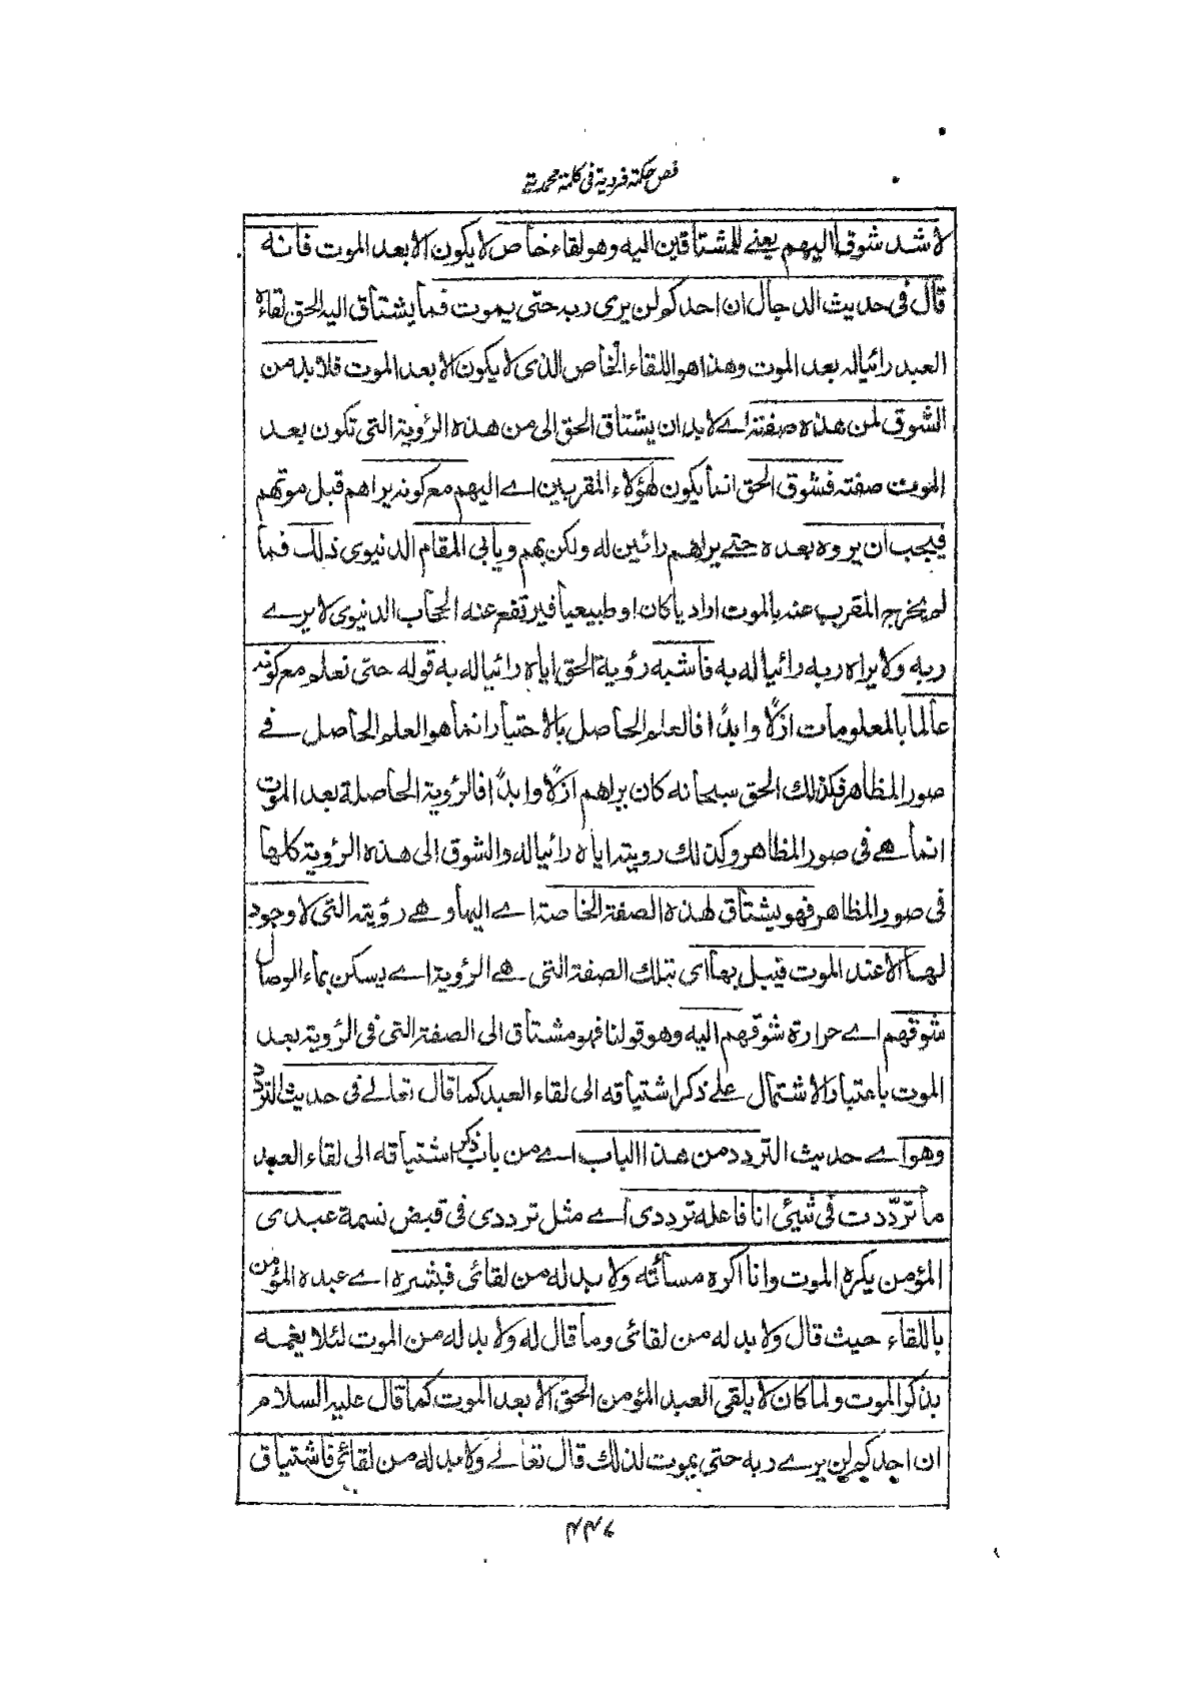 فص حكمة فردية فى كلمة محمدية
لاشد شوقا اليهم يعنے للمشتاقين اليه وهو لقاء خاص لا يكون الا بعد الموت فانه
قال فى حديث الدجال ان احدكم لن يرى ربه حتى يموت فما يشتاق اليه الحق لقاء
العبد رائيا له بعد الموت وهذا هو اللقاء الخاص الذى لا يكون الا بعد الموت فلا بد من
الشوق لمن هذه صفته اے لا بد ان يشتاق الحق الى من هذه الرؤية التى تكون بعد
الموت صفته فشوق الحق انما يكون لهؤلاء المقربين اے اليهم مع كونه يراهم قبل موتهم
فيجب ان يروه بعده حتے يراهم رائين له ولكن بهم ويابى المقام الدنيوى ذلك فما
لم يخرج المقرب عنه بالموت اراديا كان او طبيعيا فيرتفع عنه الحجاب الدنيوى لا يرے
ربه ولا يراه ربه رائيا له به فاشبه رؤية الحق اياه رائيا له به قوله حتى نعلم مع كونه
عالما بالمعلومات ازلًا وابدًا فالعلم الحاصل بالاختيار انما هو العلم الحاصل فے
صور المظاهر فكذلك الحق سبحانه كان يراهم ازلًا وابدًا فالرؤية الحاصلة بعد الموت
انما هے فى صور المظاهر وكذلك رويته اياه رائيا له والشوق الى هذه الرؤية كلها
فى صور المظاهر فهو يشتاق لهذه الصفة الخاصة اے اليها وهے رؤيته التى لا وجود
لها الا عند الموت فيبل بها اى بتلك الصفة التى هے الرؤية اے يسكن بماء الوصال
شوقهم اے حرارة شوقهم اليه وهو قولنا فهو مشتاق الى الصفة التى فى الرؤية بعد
الموت باعتبار الاشتمال علے ذكر اشتياقه الى لقاء العبد كما قال تعالے فى حديث التردد
وهو اے حديث التردد من هذا الباب اے من باب ذكر اشتياقه الى لقاء العبد
ما تردّدت فى شيئ انا فاعله ترددى اے مثل ترددى فى قبض نسمة عبدى
المؤمن يكره الموت وانا اكره مسأته ولا بد له من لقائى فبشره اے عبده المؤمن
باللقاء حيث قال ولا بد له من لقائى وما قال له ولا بد له من الموت لئلا يغمه
بذكر الموت ولما كان لا يلقى العبد المؤمن الحق الا بعد الموت كما قال عليه السلام
ان احدكم لن يرے ربه حتى يموت لذلك قال تعالے ولا بد له من لقائى فاشتياق